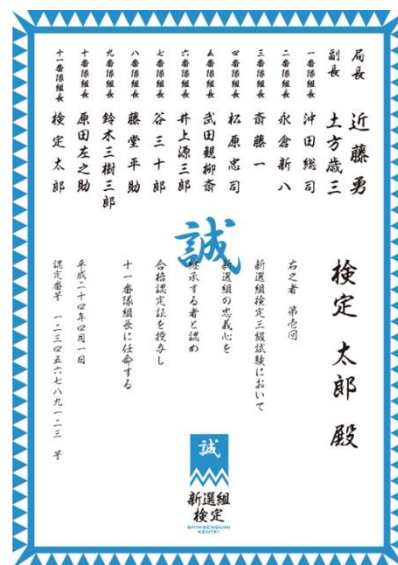 局長 近藤勇
副長 土方歳三
一番隊組長 沖田総司
二番隊組長 永倉新八
三番隊組長 斎藤一
四番隊組長 松原忠司
五番隊組長 武田観柳斎
六番隊組長 井上源三郎
七番隊組長 谷三十郎
八番隊組長 藤堂平助
九番隊組長 鈴木三樹三郎
十番隊組長 原田左之助
十一番隊組長 検定太郎
誠
検定 太郎 殿
右之者 第壱回
新選組検定三級試験において
新選組の忠義心を
継承する者と認め
合格認定証を授与し
十一番隊組長に任命する
平成二十四年四月一日
認定番号 一二三四五六七八九一二三 号
誠
新選組
検定
SHINSENGUMI
KENTEI